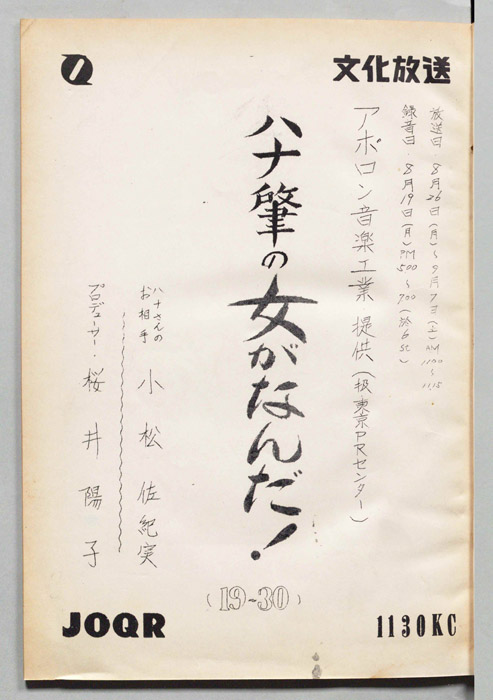 文化放送
放送日 8月26日(月)~9月7日(土)AM 11:00~11:15
録音日 8月19日(月)PM 500~700(於6st)
アポロン音楽工業 提供(扱 東京PRセンター)
ハナ肇の女がなんだ!
(19~30)
ハナさんのお相手 小松佐紀実
プロデューサー・桜井陽子
JOQR
1130KC